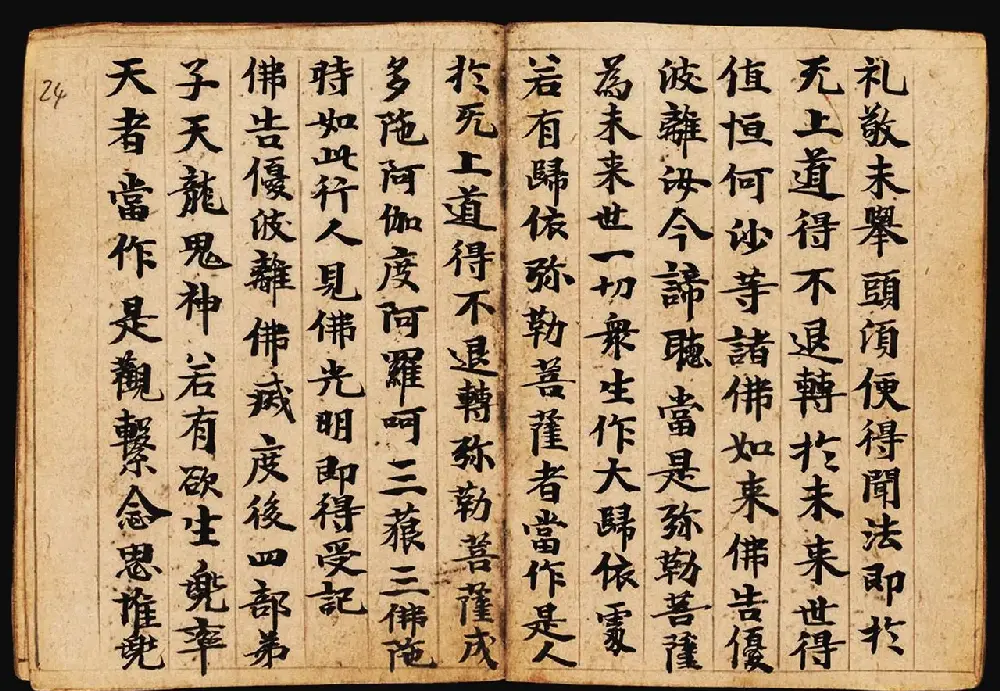 礼敬未舉頭湏便得聞法即扵
旡上道得不退轉扵未来世得
值恒何沙等諸佛如来佛告優
波離汝今諦聽當是弥勒菩薩
為未来世一切衆生作大歸依處
若有歸依弥勒菩薩者當作是人
扵旡上道得不退轉弥勒菩薩成
多陁阿伽度阿羅呵三藐三佛陁
時如此行人見佛光明即得受記
佛告優波離佛滅度後四部弟
子天龍鬼神若有欲生兜率
天者當作是觀繫念思惟兜
24